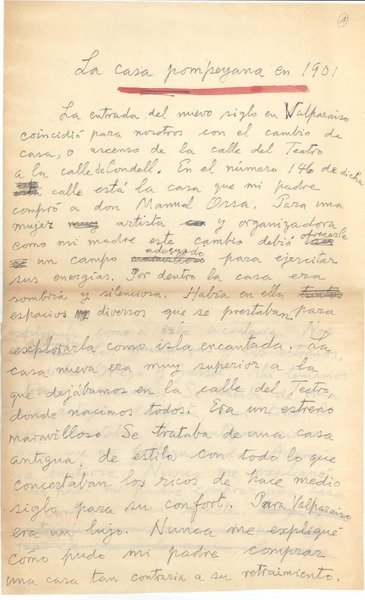 1
La casa pompeyana en 1901
La entrada del nuevo siglo en Valparaiso
coincidió para nosotros con el cambio de
casa, o ascenso de la calle del Teatro
a la calle de Condell. En el número 146 de dicha
calle está la casa que mi padre
compró a don Manuel Ossa. Para una
mujer artista y organizadora
como mi madre este cambio debió ofrecerle
un campo adecuado para ejercitar
sus energías. Por dentro la casa era
sombría y silenciosa. Había en ella
espacios diversos que se prestaban para
explorarla como isla encantada. La
casa nueva era muy superior a la
que dejábamos en la calle del Teatro,
donde nacimos todos. Era un estreno
maravilloso. Se trataba de una casa
antigua, de estilo con todo lo que
concertaban los ricos de hace medio
siglo para su confort. Para Valparaiso
era un lujo. Nunca me expliqué
cómo pudo mi padre comprar
una casa tan contraria a su retraimiento.